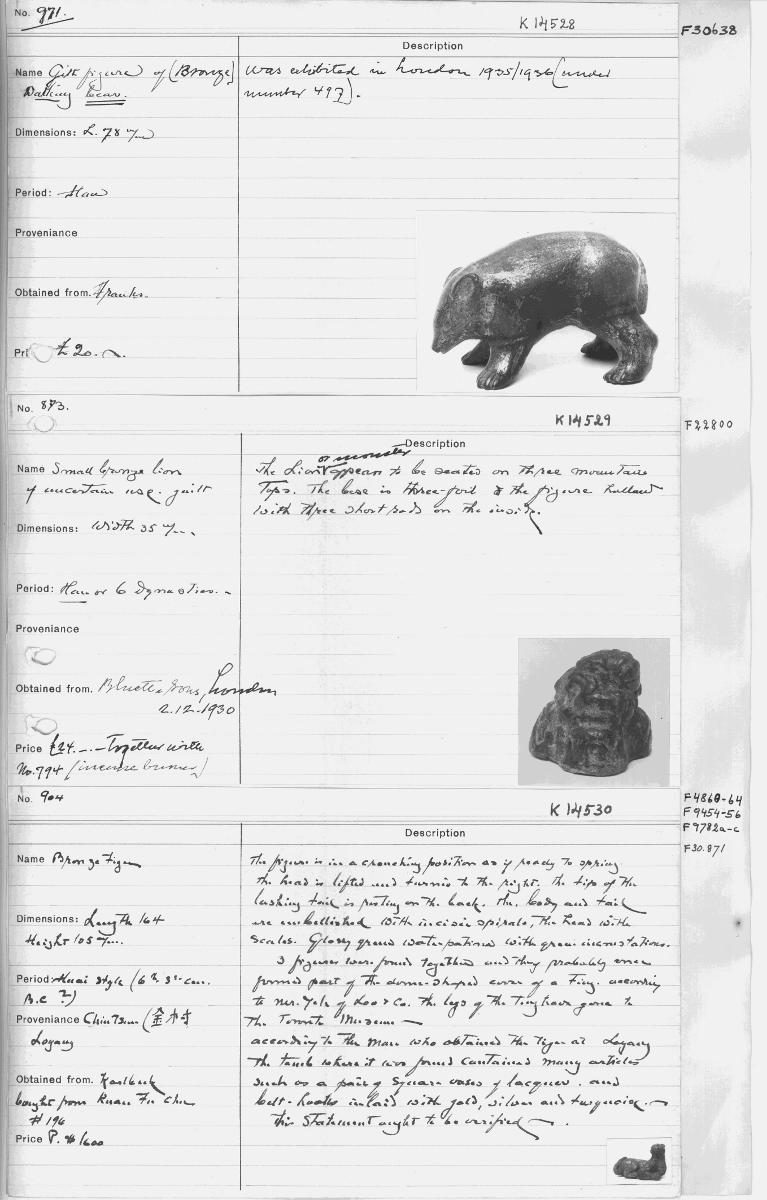 No. 971.
K 14528
F30638
Description
Name Gilt figure of (Bronze)
Walking bear.
was exhibited in London 1935/1936 (under
number 497).
Dimensions: L. 78 m/m
Period: Han
Proveniance
Obtained from. Franks.
Pri £ 20.
No. 873.
K 14529
F22800
Description
Name Small bronze lion
of uncertain use. guilt
or monster
The Lion appears to be seated on three mountain
Tops. The base is three-foil & the figure hollow
with three short rods on the inside.
Dimensions: Width 35 m/m.
Period: Han or 6 Dynasties.
Proveniance
Obtained from. Bluett & Sons, London
2.12.1930
Price £24. – – Together with
No. 794 (incense burner)
No. 904
K 14530
F4860-64
F9454-56
F9782a-c
F30.871
Description
Name Bronze Tiger
Dimensions: Length 164
Height 105 m/m.
Period: Huai style (6th 3rd cen.
B.C ?)
Proveniance Chin Tsun (金村
Loyang
Obtained from. Karlbeck
bought from Kuan Fu Chu
# 196
Price P. # 1600
The figure is in a crouching position as if ready to spring
the head is lifted and turned to the right. The tip of the
lashing tail is resting on the back. The body and tail
are embellished with incisin spirals, the head with
scales. Glossy green water patina with green incrustations.
3 figures were found together and they probably once
formed part of the dome-shaped cover of a Ting. according
to Mr. Yale of Loo & Co. the legs of the Ting have gone to
the Toronto Museum —
according to the man who obtained the tiger at Loyang
the tomb where it was found contained many articles
such as a pair of square vases of lacquer. and
belt-hooks inlaid with gold, silver and turquoise. —
this statement ought to be verified — .